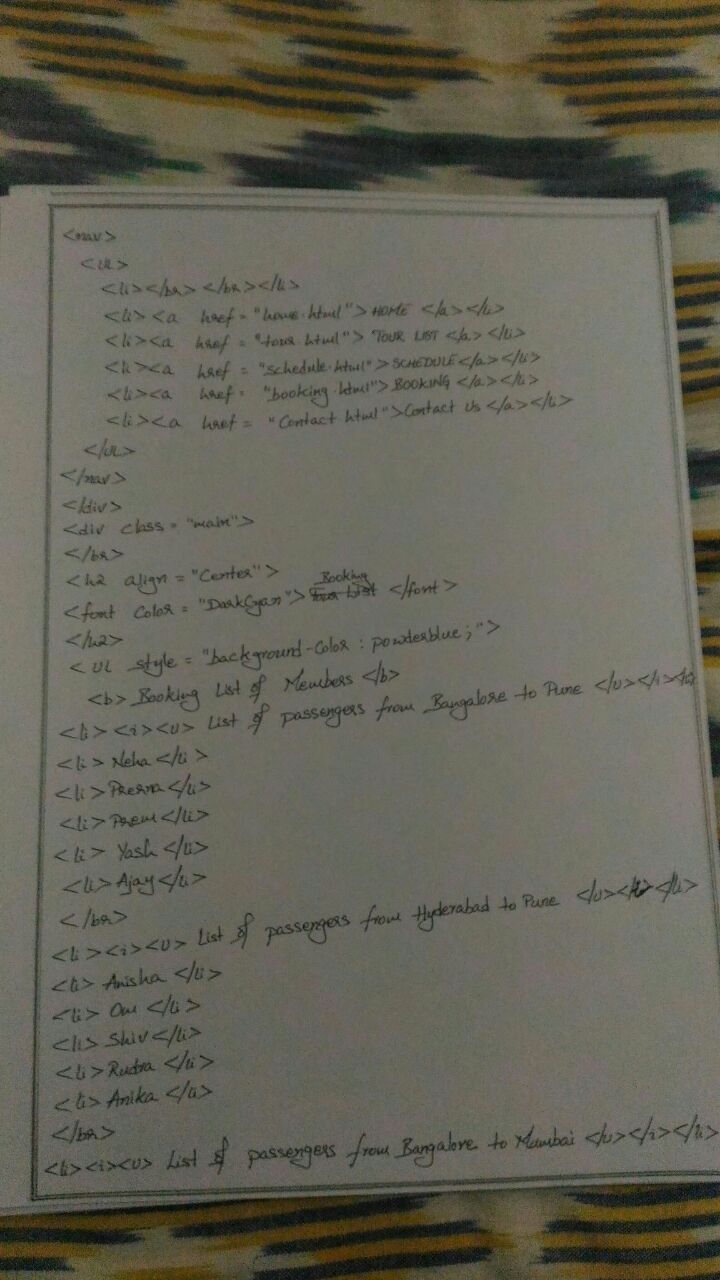 <nav>
<UL>
<li></br></br></li>
<li><a href="home.html">HOME</a></li>
<li><a href="tour.html">TOUR LIST</a></li>
<li><a href="schedule.html">SCHEDULE</a></li>
<li><a href="booking.html">BOOKING</a></li>
<li><a href="Contact.html">Contact Us</a></li>
</UL>
</nav>
</div>
<div class="main">
</br>
<h2 align="Center">
<font Color="DarkCyan"> Booking Tour List </font>
</h2>
<UL style="background-color:powderblue;">
<b>Booking List of Members</b>
<li><i><u> List of passengers from Bangalore to Pune </u></i></li>
<li>Neha</li>
<li>Prerna</li>
<li>Prem</li>
<li>Yash</li>
<li>Ajay</li>
</br>
<li><i><u> List of passengers from Hyderabad to Pune </u></i></li>
<li>Anisha</li>
<li>Om</li>
<li>Shiv</li>
<li>Rudra</li>
<li>Anika</li>
</br>
<li><i><u> List of passengers from Bangalore to Mumbai </u></i></li>